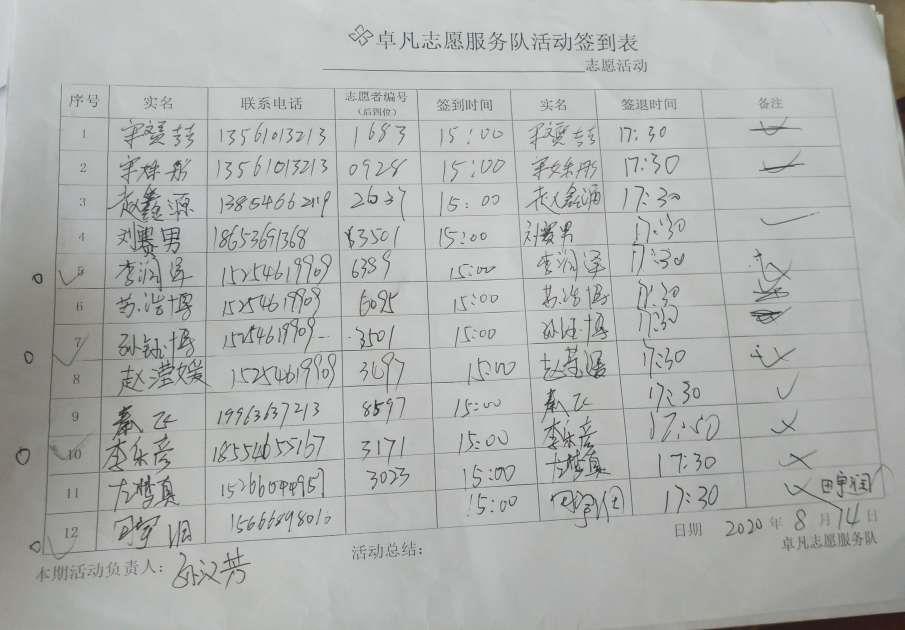 卓凡志愿服务队活动签到表
志愿活动
序号 实名 联系电话 志愿者编号(后四位) 签到时间 实名 签退时间 备注
1 13561013213 1683 15:00 17:30
2 13561013213 0928 15:00 17:30
3 赵鑫源 2637 15:00 17:30
4 刘赛男 18653691368 3501 15:00 刘赛男 17:30
5 李润泽 15254619909 6389 15:00 李润泽 17:30
6 苏浩博 15254619909 6095 15:00 苏浩博 17:30
7 孙钰博 15254619909 3501 15:00 孙钰博 17:30
8 赵滢媛 15254619909 3697 15:00 赵滢媛 17:30
9 秦飞 19963637213 8597 15:00 秦飞 17:30
10 李乐彦 18554655167 3171 15:00 李乐彦
11 左梦真 3023 15:00 左梦真 17:30
12 田宇润 15666898010 15:00 17:30 田宇润
日期 2020年8月14日
卓凡志愿服务队
活动总结:
本期活动负责人: 孙汉芳